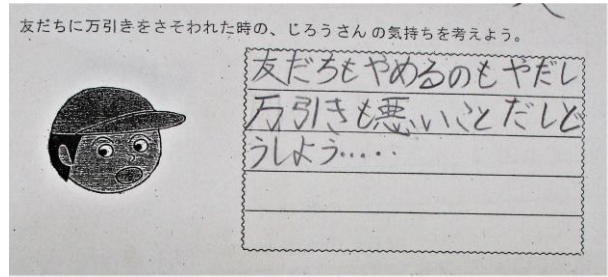 友だちに万引きをさそわれた時の、じろうさんの気持ちを考えよう。
友だちもやめるのもやだし
万引きも悪いことだしど
うしよう……